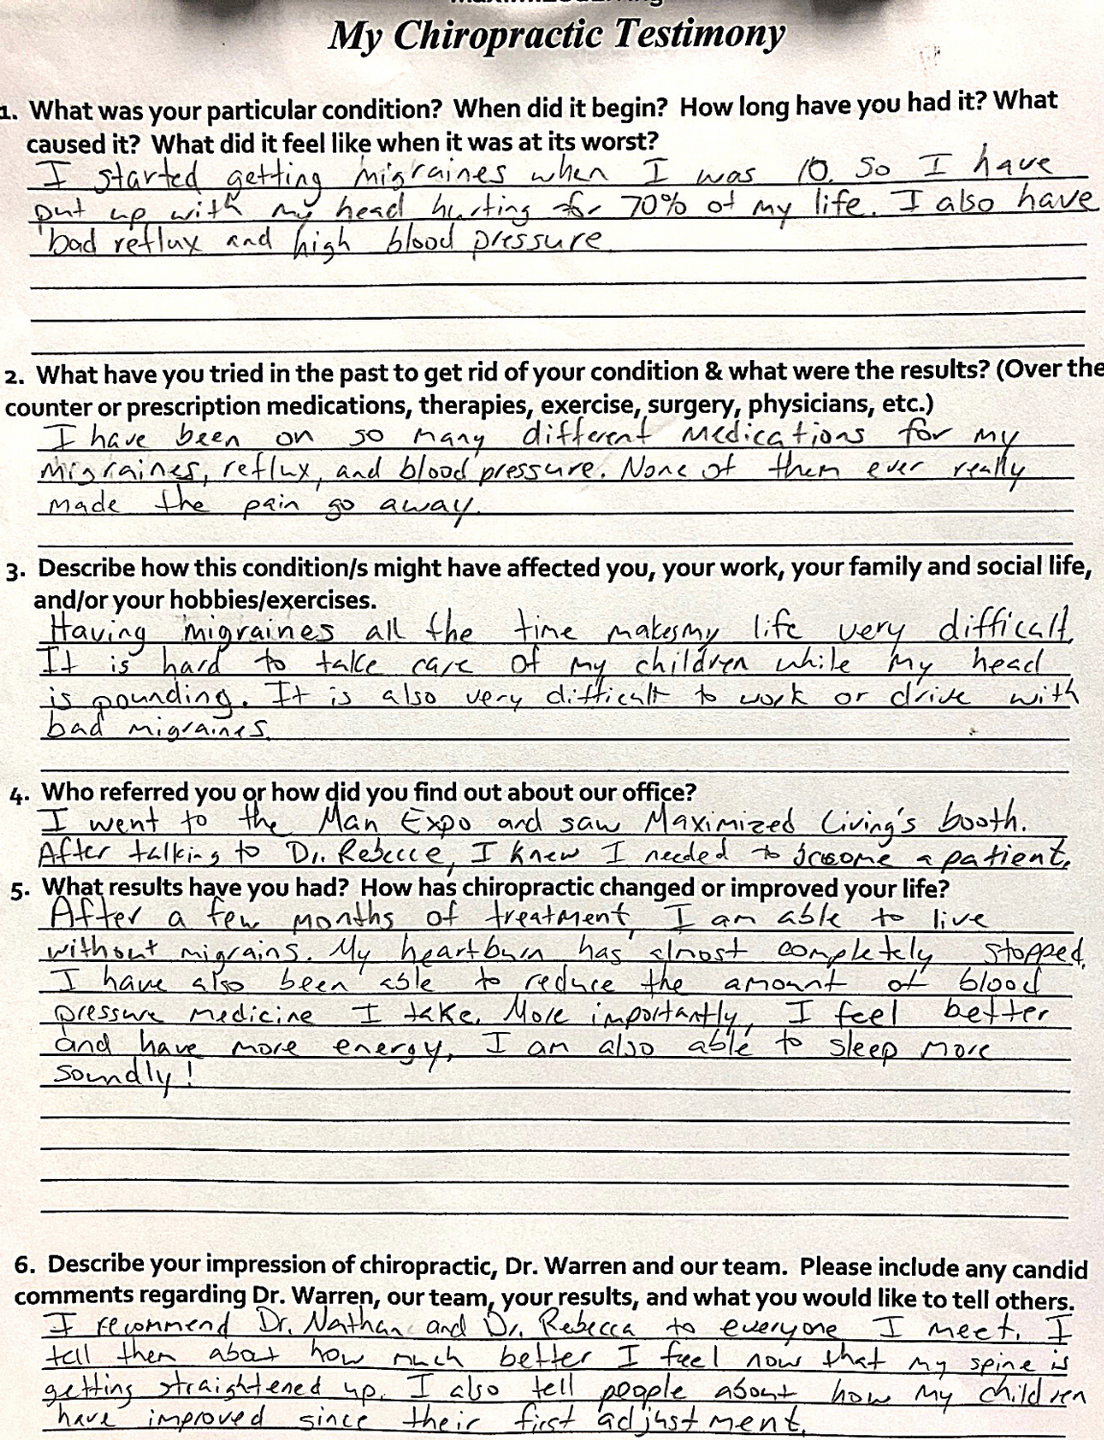 My Chiropractic Testimony
1. What was your particular condition? When did it begin? How long have you had it? What
caused it? What did it feel like when it was at its worst?
I started getting migraines when I was 10. So I have
put up with my head hurting for 70% of my life. I also have
bad reflux and high blood pressure.
2. What have you tried in the past to get rid of your condition & what were the results? (Over the
counter or prescription medications, therapies, exercise, surgery, physicians, etc.)
I have been on so many different medications for my
migraines, reflux, and blood pressure. None of them ever really
made the pain go away.
3. Describe how this condition/s might have affected you, your work, your family and social life,
and/or your hobbies/exercises.
Having migraines all the time makes my life very difficult.
It is hard to take care of my children while my head
is pounding. It is also very difficult to work or drive with
bad migraines.
4. Who referred you or how did you find out about our office?
I went to the Man Expo and saw Maximized Living's booth.
After talking to Dr. Rebecce, I knew I needed to become a patient.
5. What results have you had? How has chiropractic changed or improved your life?
After a few months of treatment, I am able to live
without migrains. My heartburn has almost completely stopped.
I have also been able to reduce the amount of blood
pressure medicine I take. More importantly, I feel better
and have more energy, I am also able to sleep more
soundly!
6. Describe your impression of chiropractic, Dr. Warren and our team. Please include any candid
comments regarding Dr. Warren, our team, your results, and what you would like to tell others.
I recommend Dr. Nathan and Dr. Rebecca to everyone I meet. I
tell them about how much better I feel now that my spine is
getting straightened up. I also tell people about how my children
have improved since their first adjustment.